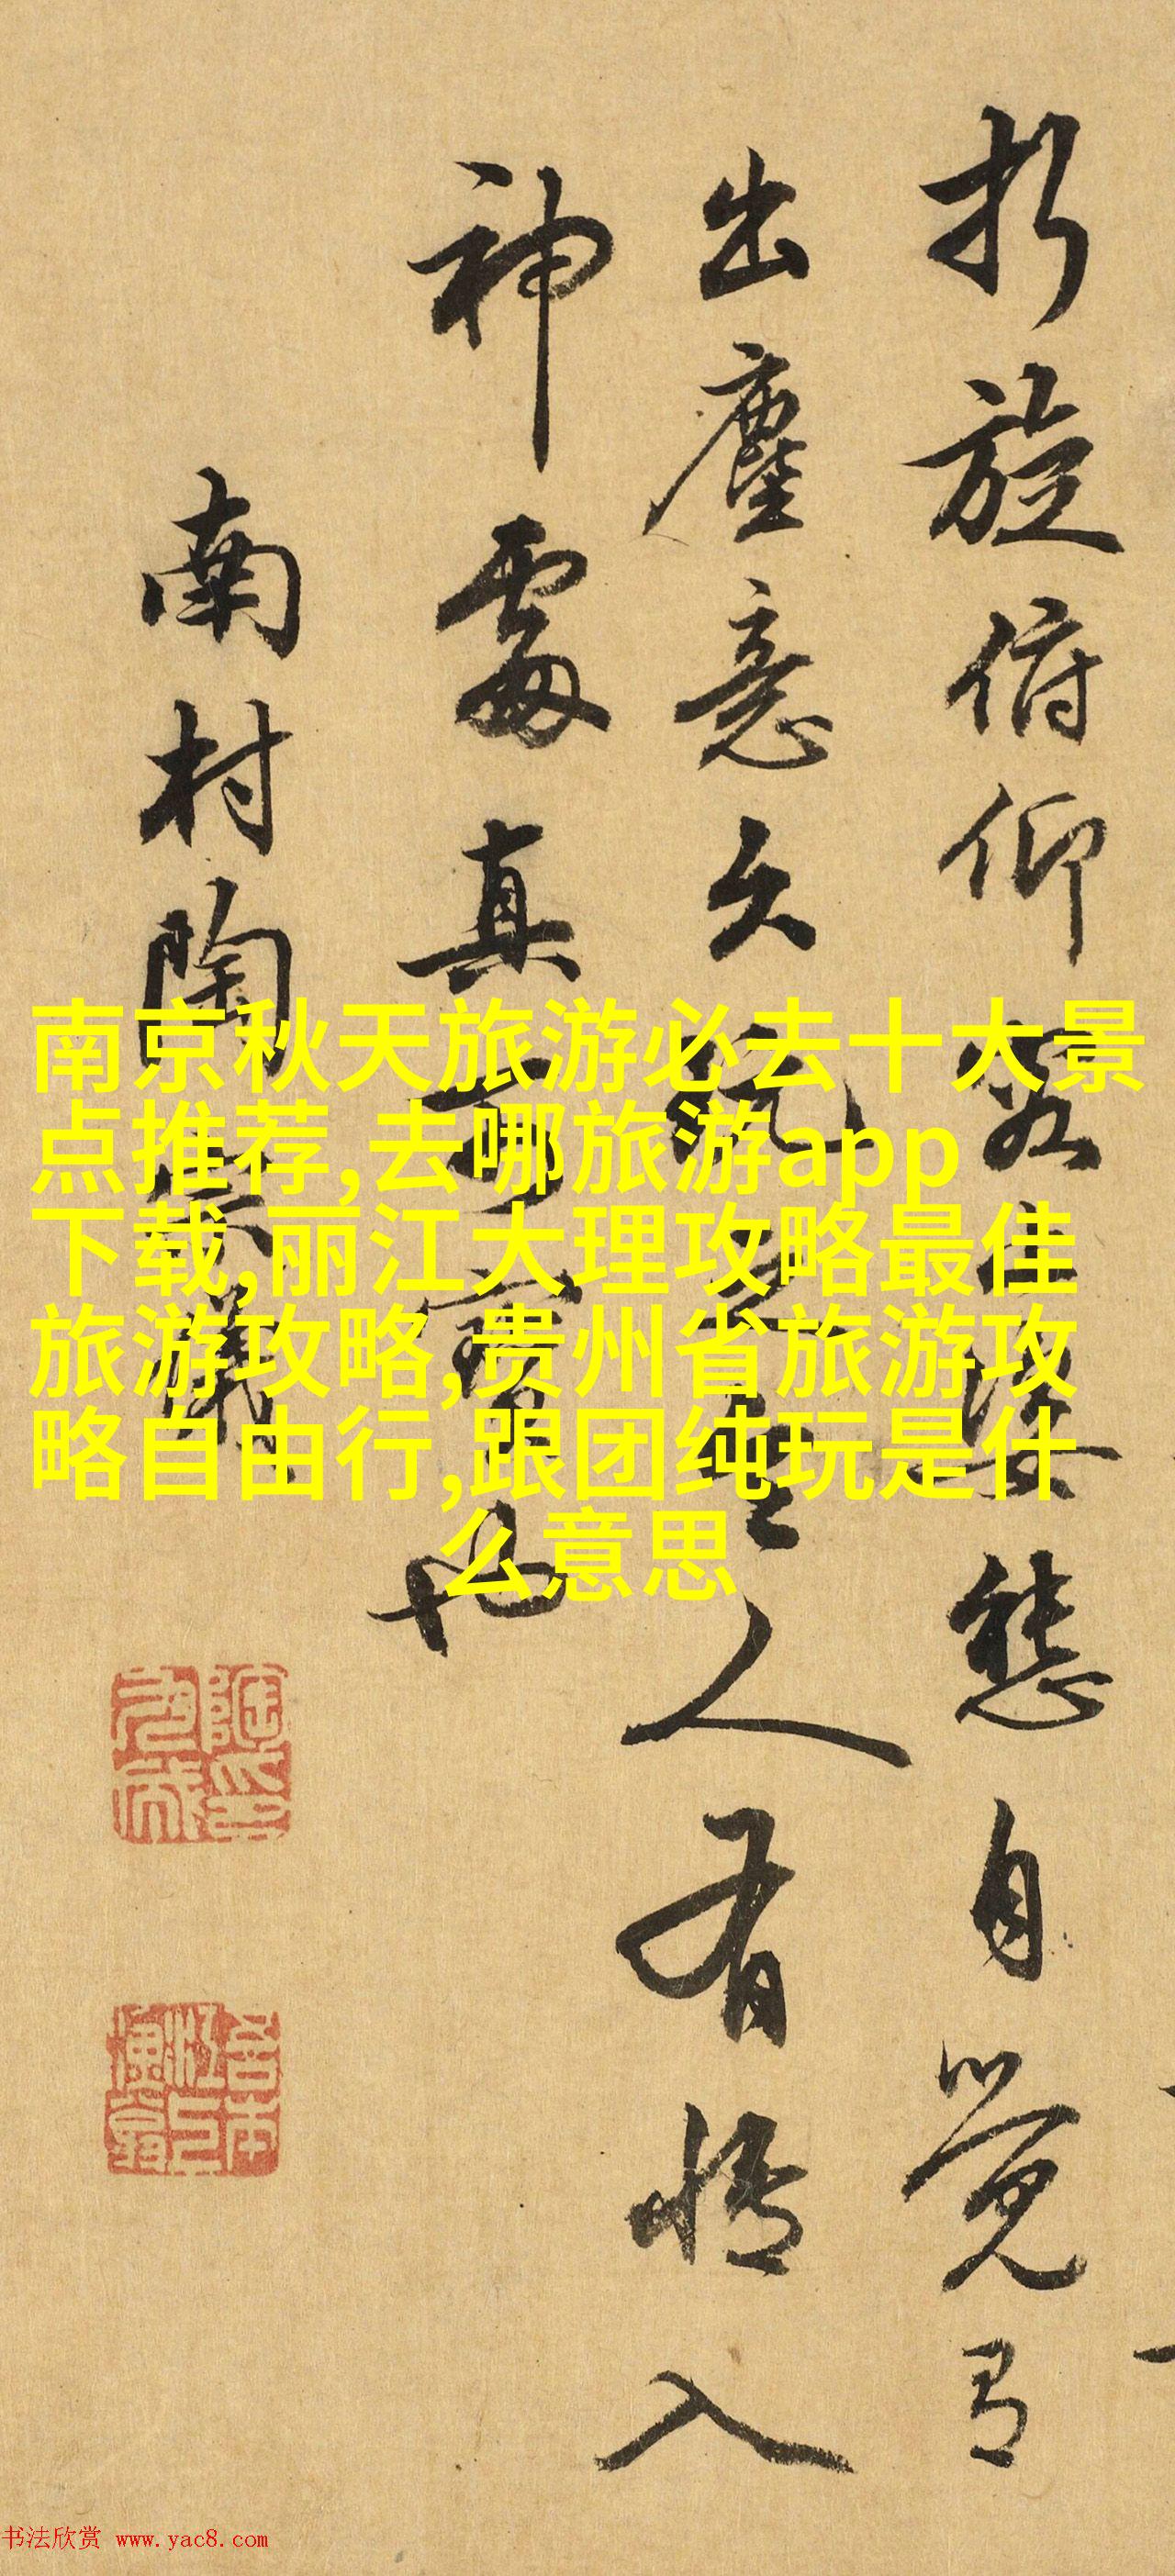 折旋俯仰皆佳姿態自覺有
出塵意久玩之令人有情入
神處真可寶也
南村陶宗儀
南京秋天旅游必去十大景
点推荐,去哪旅游app
下载,丽江大理攻略最佳
旅游攻略,贵州省旅游攻
略自由行,跟团纯玩是什
么意思
书法欣赏 www.yac8.com